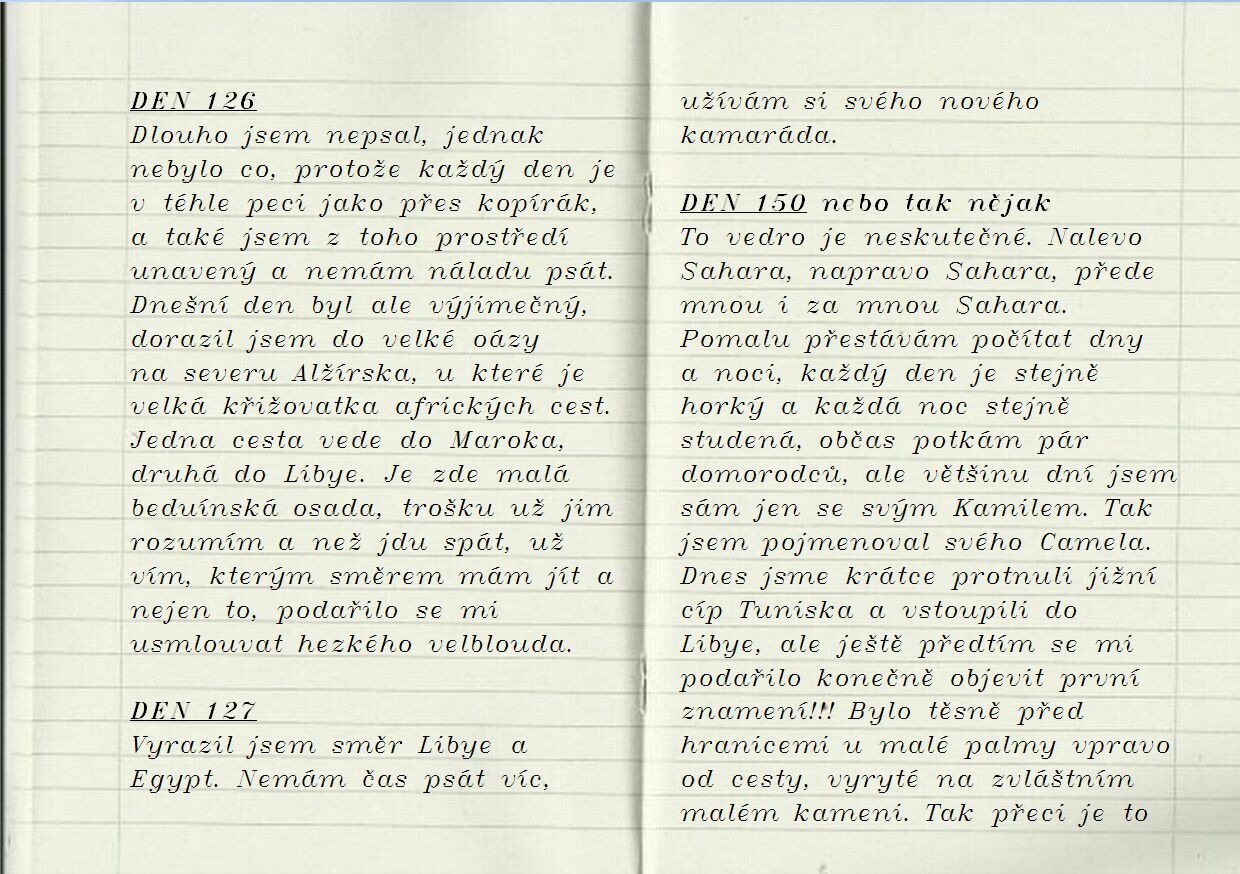 DEN 126
Dlouho jsem nepsal, jednak
nebylo co, protože každý den je
v téhle peci jako přes kopírák,
a také jsem z toho prostředí
unavený a nemám náladu psát.
Dnešní den byl ale výjimečný,
dorazil jsem do velké oázy
na severu Alžírska, u které je
velká křižovatka afrických cest.
Jedna cesta vede do Maroka,
druhá do Libye. Je zde malá
beduínská osada, trošku už jim
rozumím a než jdu spát, už
vím, kterým směrem mám jít a
nejen to, podařilo se mi
usmlouvat hezkého velblouda.
DEN 127
Vyrazil jsem směr Libye a
Egypt. Nemám čas psát víc,
užívám si svého nového
kamaráda.
DEN 150 nebo tak nějak
To vedro je neskutečné. Nalevo
Sahara, napravo Sahara, přede
mnou i za mnou Sahara.
Pomalu přestávám počítat dny
a noci, každý den je stejně
horký a každá noc stejně
studená, občas potkám pár
domorodců, ale většinu dní jsem
sám jen se svým Kamilem. Tak
jsem pojmenoval svého Camela.
Dnes jsme krátce protnuli jižní
cíp Tuniska a vstoupili do
Libye, ale ještě předtím se mi
podařilo konečně objevit první
znamení!!! Bylo těsně před
hranicemi u malé palmy vpravo
od cesty, vyryté na zvláštním
malém kameni. Tak přeci je to